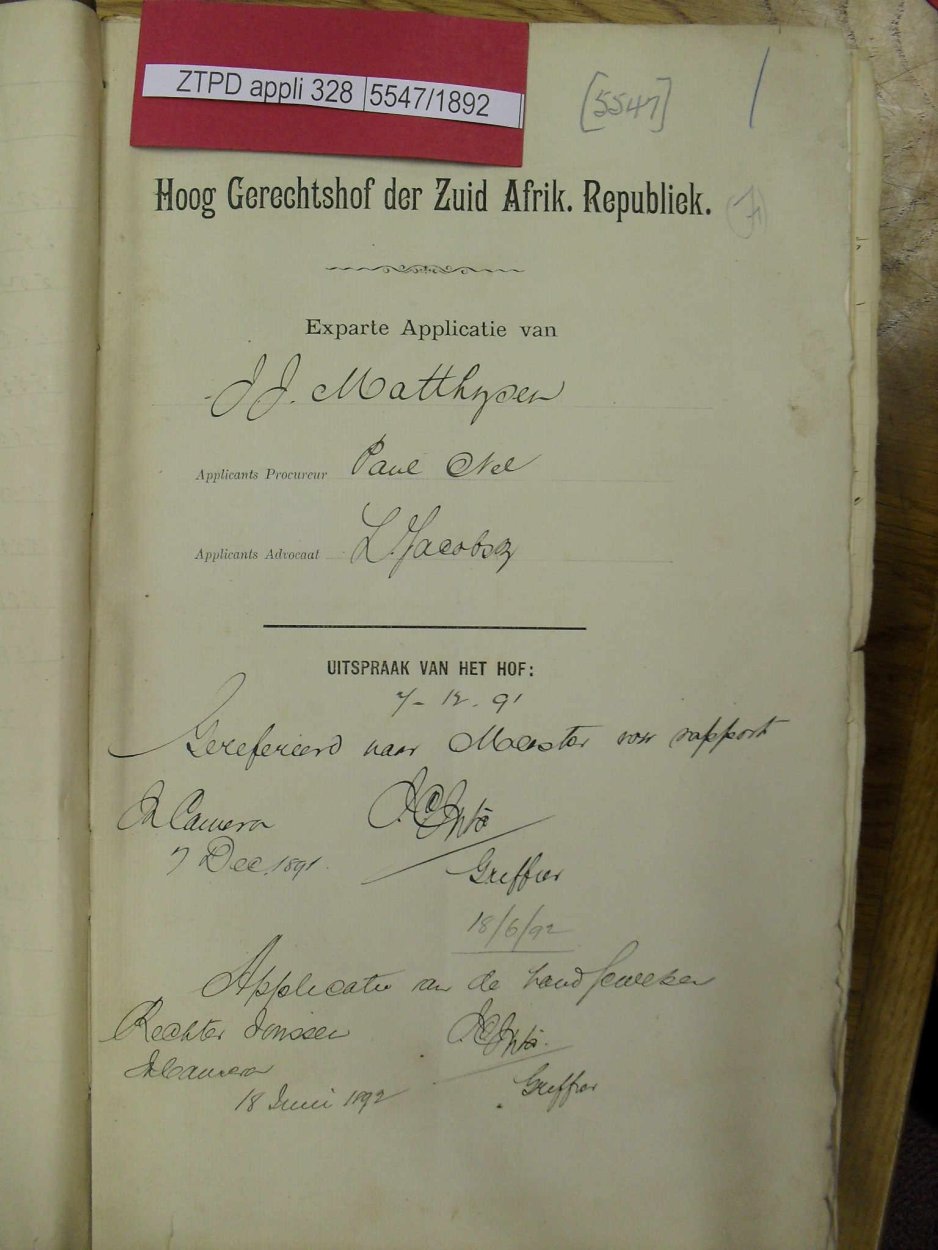 ZTPD appli 328 5547/1892
[5547]
Hoog Gerechtshof der Zuid Afrik. Republiek.
(7)
Exparte Applicatie van
J J. Matthysen
Applicants Procureur Paul Nel
Applicants Advocaat L. Jacobsz
UITSPRAAK VAN HET HOF:
7-12-91
Gerefereerd naar Meester voor rapport
In Camera
7 Dec. 1891.
Griffier
18/6/92
Applicatie van de hand gewezen
Rechter Jorissen
In Camera
Griffier
18 Juni 1892